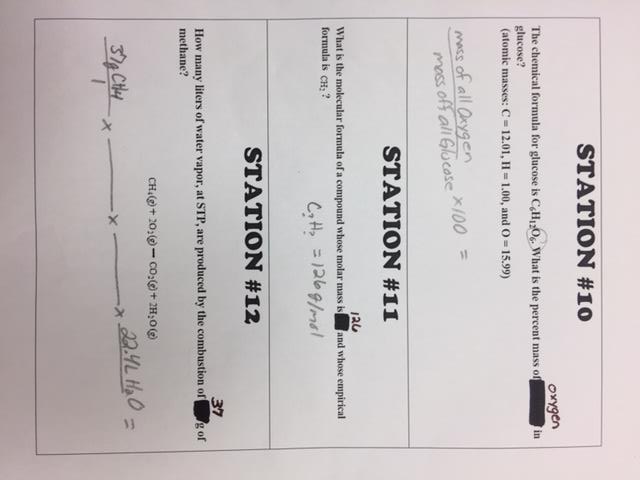 STATION #10
The chemical formula for glucose is C₆H₁₂O₆. What is the percent mass of oxygen in
glucose?
(atomic masses: C = 12.01, H = 1.00, and O = 15.99)
mass of all Oxygen
mass off all Glucose x100 =
STATION #11
What is the molecular formula of a compound whose molar mass is 126 and whose empirical
formula is CH₂?
C?H? = 126g/mol
STATION #12
How many liters of water vapor, at STP, are produced by the combustion of 37 g of
methane?
CH₄(g) + 2O₂(g) → CO₂(g) + 2H₂O(g)
37g CH4 x x x 22.4L H2O =
1